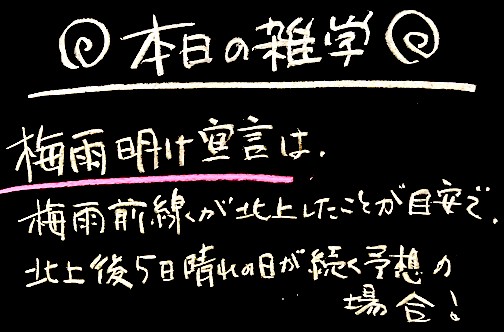 本日の雑学
梅雨明け宣言は、
梅雨前線が北上したことが目安で、
北上後5日晴れの日が続く予想の
場合!